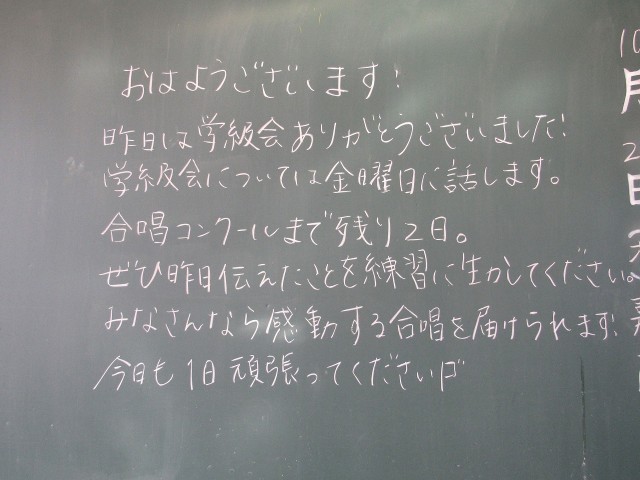 おはようございます!
昨日は学級会ありがとうございました!
学級会については金曜日に話します。
合唱コンクールまで残り2日。
ぜひ昨日伝えたことを練習に生かしてください。
みなさんなら感動する合唱を届けられます!
今日も1日頑張ってください!
10
月
2
日